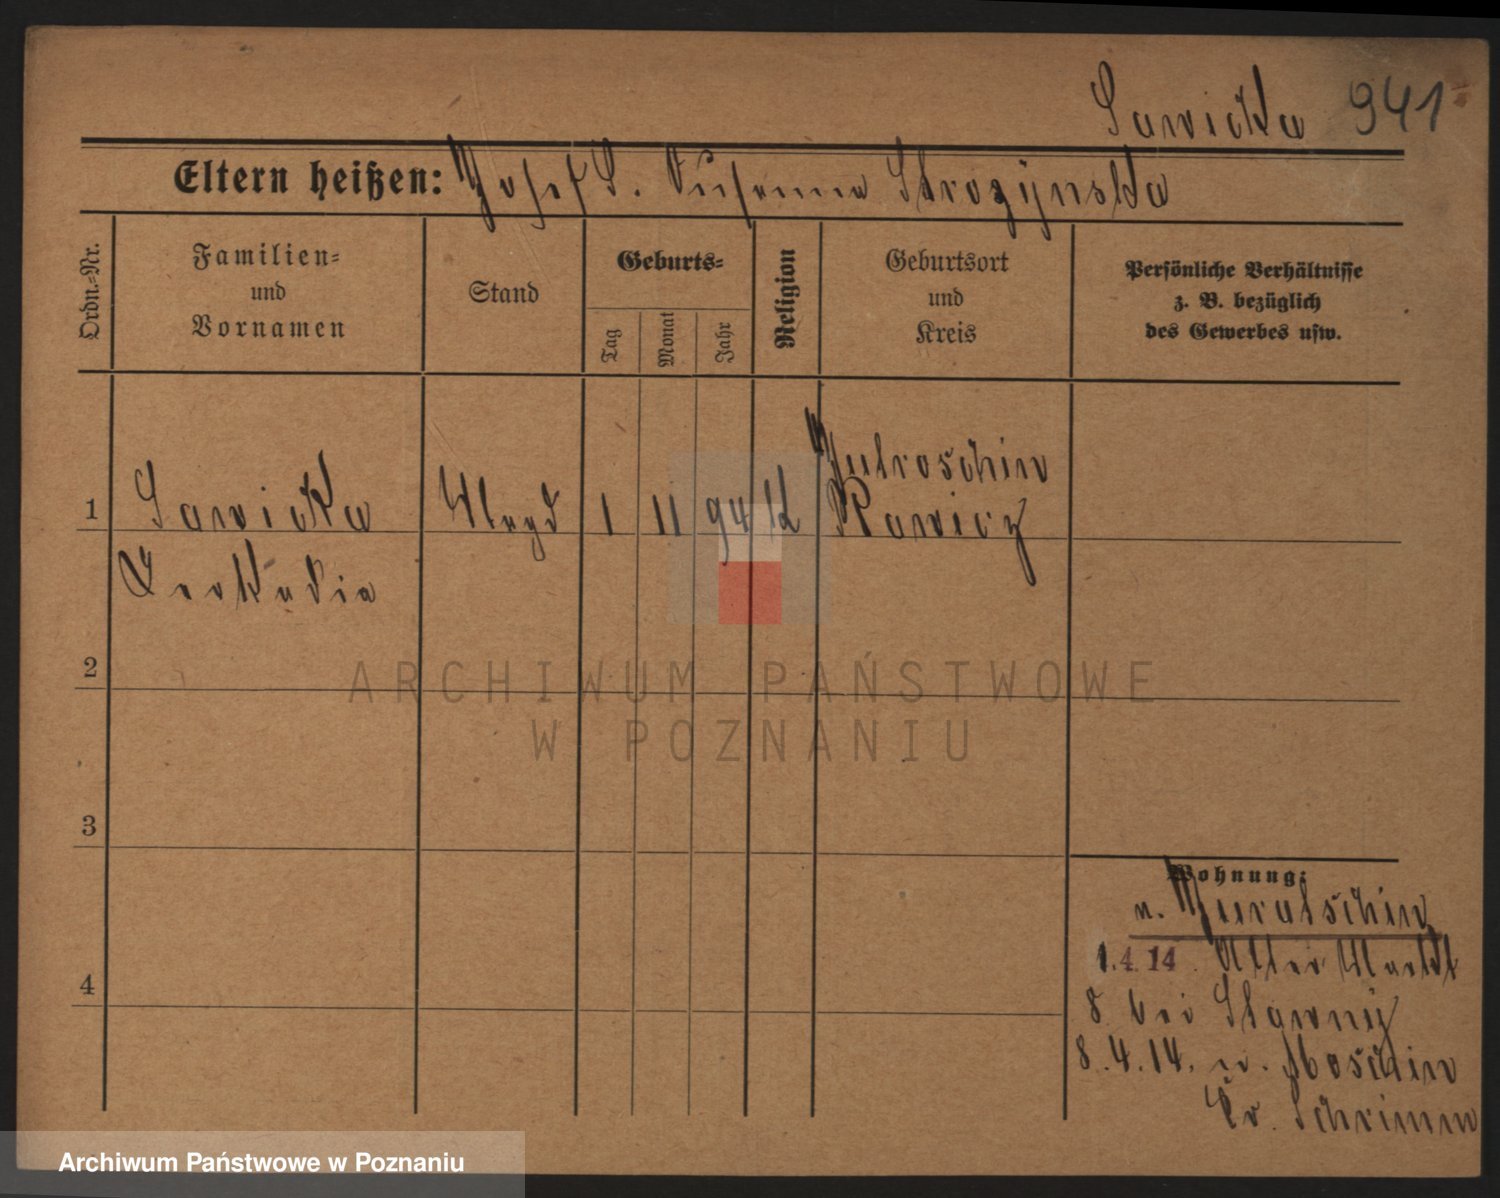 Sawicka 941
Eltern heißen: Josef S. Susanna Strozynska
Ordn.-Nr.
Familien-
und
Vornamen
Stand
Geburts-
Tag
Monat
Jahr
Religion
Geburtsort
und
Kreis
Persönliche Verhältnisse
z. B. bezüglich
des Gewerbes usw.
Jutroschin
1 Sawicka Magd 1 11 94 K Rawicz
Leokadia
2
ARCHIWUM PAŃSTWOWE
W POZNANIU
3
Wohnung:
n. 
4
1.4.14. Alter Markt
8 bei
8.4.14. n. Moschin
Kr. Schrimm
Archiwum Państwowe w Poznaniu